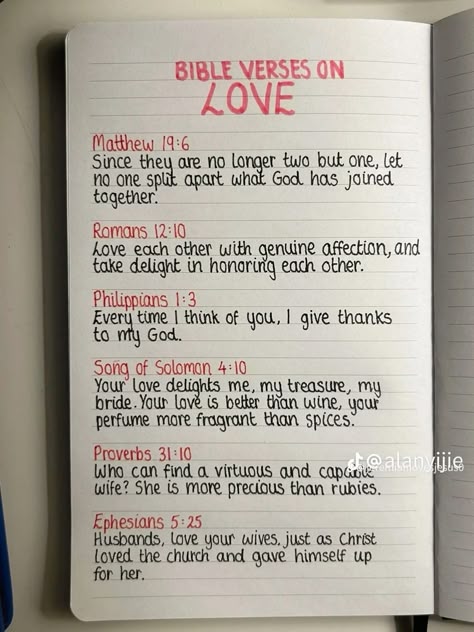 BIBLE VERSES ON
LOVE
Matthew 19:6
Since they are no longer two but one, let
no one split apart what God has joined
together.
Romans 12:10
Love each other with genuine affection, and
take delight in honoring each other.
Philippians 1:3
Every time I think of you, I give thanks
to my God.
Song of Solomon 4:10
Your love delights me, my treasure, my
bride. Your love is better than wine, your
perfume more fragrant than spices.
Proverbs 31:10
Who can find a virtuous and capable
wife? She is more precious than rubies.
@alanyijie
Ephesians 5:25
Husbands, love your wives, just as Christ
loved the church and gave himself up
for her.